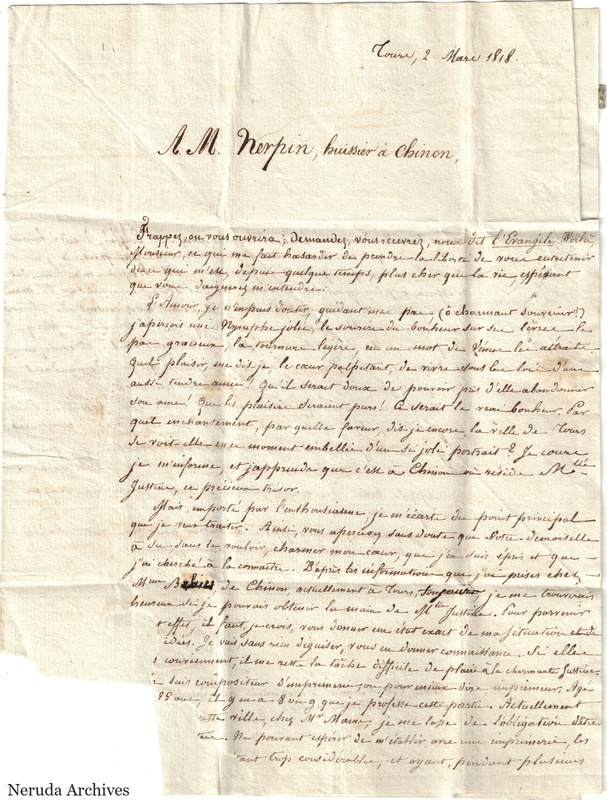 Tours, 2 Mars 1818.
A M. Nerpin, huissier à Chinon,
Frappez, on vous ouvrira; demandez, vous recevrez, nous dit l'Evangile. Voilà,
Monsieur, ce qui me fait hasarder de prendre la liberté de vous entretenir
de ce qui m'est, depuis quelque temps, plus cher que la vie, espérant
que vous daignerez m'entendre.
L'Amour, je n'en puis douter, guidant mes pas (ô charmant souvenir!)
j'aperçois une Nymphe jolie, le sourire du bonheur sur ses lèvres, le
pas gracieux, la tournure légère, en un mot de Vénus les attraits.
Quel plaisir, me dis-je, le cœur palpitant, de vivre sous les lois d'une
aussi tendre amie! Qu'il serait doux de pouvoir près d'elle abandonner
son ame! Que les plaisirs seraient purs! Ce serait le vrai bonheur. Par
quel enchantement, par quelle faveur, dis-je encore, la ville de Tours
se voit elle en ce moment embellie d'un si joli portrait? Je cours
je m'informe, et j'apprends que c'est à Chinon où réside Melle
Justine, ce précieux trésor.
Mais, emporté par l'enthousiasme, je m'écarte du point principal
que je veux traiter. Ainsi, vous apercevez sans doute que Votre demoiselle
a su sans le vouloir, charmer mon cœur, que j'en suis épris et que
j'ai cherché à la connaître. D'après les informations que j'ai prises chez
Mme de Chinon, actuellement à Tours, je me trouverais
heureux si je pouvais obtenir la main de Melle Justine. Pour parvenir
t effet, il faut, je crois, vous donner un état exact de ma situation et de
idées. Je vais sans rien déguiser, vous en donner connaissance. Si elle
s conviennent, il me reste la tâche difficile de plaire à la charmante Justine.
e suis compositeur d'imprimerie, ou pour mieux dire imprimeur. Agé
25 ans, il y en a 8 ou 9 que je professe cette partie. Actuellement
cette ville, chez Mr Mame, je me lasse de l'obligation d'être
Ne pouvant espérer de m'établir avec une imprimerie, les
tant trop considérables, et ayant, pendant plusieurs
Neruda Archives